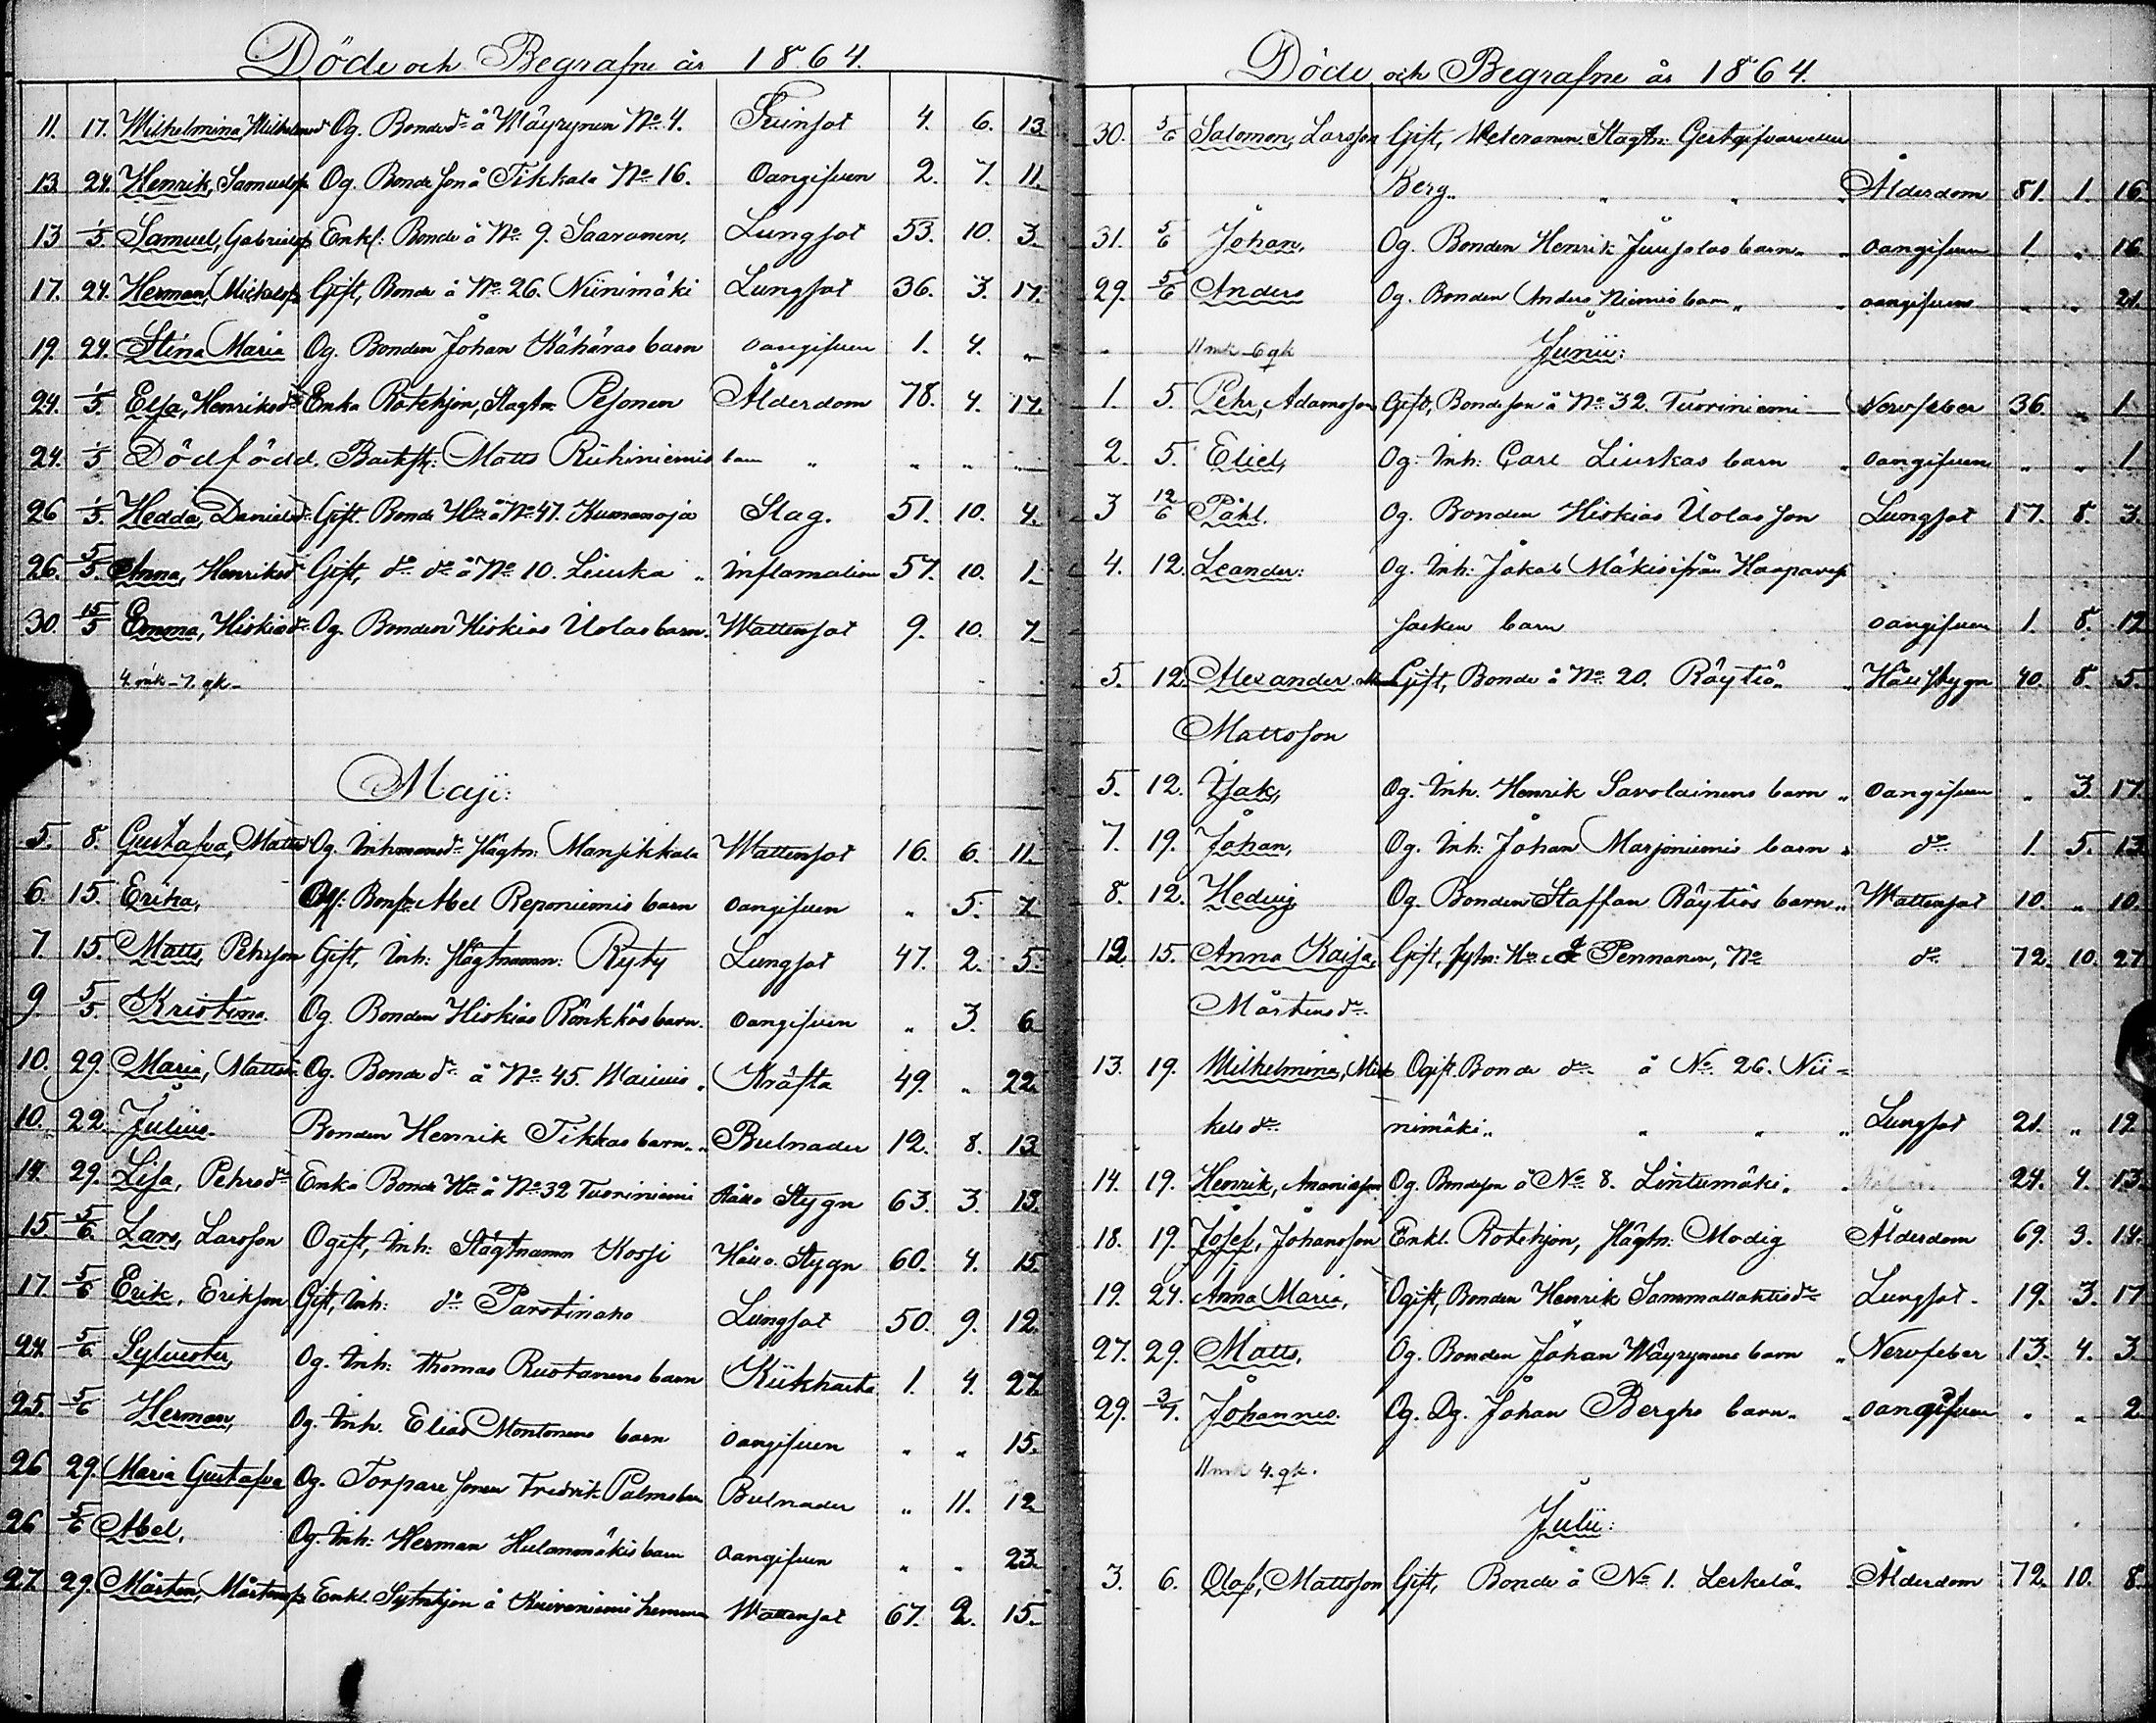 Döde och Begrafne år 1864.
11. 17. Wilhelmina, Wilhelmsdr Og. Bondedr å Wäyrynen No. 4. Tvinsot 4. 6. 13.
13 24. Henrik, Samuelss. Og. Bonde son å Tikkala No 16. Oangifven 2. 7. 11.
13 1/5. Samuel, Gabrielss. Enkl: Bonde å No. 9. Saaranen, Lungsot 53. 10. 3.
17. 24. Herman, Mickelss. Gift, Bonde å No. 26. Niinimäki Lungsot 36. 3. 17.
19. 24. Stina Maria Og. Bonden Johan Kähäräs barn oangifven 1. 4. „
24. 1/5. Elsa, Henriksdr Enka Rotehjon, Slagtn. Pesonen Ålderdom 78. 4. 17.
24. 1/5 Dödfödd. Backst: Matts Riihiniemis barn „ „ „ „
26 1/5. Hedda, Danielsdr Gift. Bonde Hu å No 47. Kumanoja Slag. 51. 10. 4.
26. 5/5. Anna, Henriksdr Gift, do do å No 10. Liuska „ Inflamation 57. 10. 1.
30. 15/5 Emma, Hiskiasdr Og. Bonden Hiskias Uolas barn. Wattensot 9. 10. 7.
4. mk - 7. qk -
Maji:
5. 8. Gustafva, Mattsdr Og. Inhmansdr slägtn: Mansikkala Wattensot 16. 6. 11.
6. 15. Erika, Abel Reponiemis barn oangifven „ 5. 7.
7. 15. Matts, Pehrson Gift, Inh: slägtnamn: Ryty Lungsot 47. 2. 5.
9. 5/5. Kristina. Og. Bonden Hiskias Rönkkös barn. oangifven „ 3. 6.
10. 29. Maria, Mattsdr Og. Bonde dr å No. 45. „ Kräfta 49. „ 22.
10. 22. Julius. Bonden Henrik Tikkas barn. „ Bulnader 12. 8. 13
14. 29. Lisa, Pehrsdr Enka Bonde Hu å No 32 Tuoriniemi Håll o Stygn 63. 3. 13.
15. 5/6. Lars, Larsson Ogift, Inh: Slägtnamn Kossi Håll o. Stygn 60. 4. 15.
17. 5/6 Erik, Erikson Gift, Inh: do Parotinaho Lungsot 50. 9. 12.
24. 5/6. Sylvester, Og. Inh: Thomas Ruotanens barn Kikhosta 1. 4. 27.
25. 5/6 Herman, Og. Inh. Elias Montonens barn oangifven „ „ 15.
26 29. Maria Gustafva Og. Torpare sonen Fredrik Palms barn Bulnader „ 11. 12.
26 5/6 Abel, Og. Inh: Herman Hulanmäkis barn oangifven „ „ 23.
27. 29. Mårten, Mårtenss. Enkl. Sytnhjon å Kuivaniemi hemman Wattensot 67. 2. 15.
Döde och Begrafne år 1864.
30. 5/6 Salomon, Larsson Gift, Veteranen. Slagtn: Gestgifvare
Berg. „ „ Ålderdom 81. 1. 16.
31. 5/6 Johan, Og. Bonden Henrik Juusolas barn „ oangifven 1. „ 16
29. 5/6 Anders Og. Bonden Anders Niemis barn „ oangifven „ „ 21.
11 mk - 6 qk Junii:
1. 5. Pehr, Adamsson Gift, Bondeson å No. 32. Tuoriniemi Nervfeber 36. „ 1.
2. 5. Eliel, Og. Inh: Carl Liuskas barn oangifven „ „ 1.
3 12/6 Påhl. Og. Bonden Hiskias Uolas son Lungsot 17. 8. 3.
4. 12. Leander: Og. Inh: Jakob Mäkis ifrån Haapavesi
socken barn oangifven 1. 8. 12.
5. 12. Alexander Gift, Bonde å No. 20. Räytiö. „ Håll Stygn 40. 8. 5.
Mattsson
5. 12. Isak, Og. Inh. Henrik Savolainens barn „ oangifven „ 3. 17.
7. 19. Johan, Og. Inh: Johan Marjoniemis barn „ do 1. 5. 13.
8. 12. Hedvig Og. Bonden Staffan Räytiös barn „ Wattensot 10. „ 10.
12. 15. Anna Kaisa, Gift, Sytn: Hu Pennanen, No do 72. 10. 27.
Mårtensdr.
13. 19. Wilhelmina, Mic Ogift. Bonde dr å No. 26. Nii=
kelsdr. nimäki „ „ „ Lungsot 21. „ 12.
14. 19. Henrik, Ananiasson Og. Bondeson å No 8. Lintumäki. „ 24. 4. 13.
18. 19. Josef, Johansson Enkl. Rotehjon, slägtn: Modig Ålderdom 69. 3. 14.
19. 24. Anna Maria, Ogift, Bonden Henrik Sammallahtisdr Lungsot. 19. 3. 17.
27. 29. Matts, Og. Bonden Johan Wäyrynens barn „ Nervfeber 13. 4. 3.
29. 3/7. Johannes. Og. Dg. Johan Berghs barn. „ oangifven „ „ 2.
11 mk 4. qk.
Julii:
3. 6. Olof, Mattsson Gift, Bonde å No 1. Leskelä. Ålderdom 72. 10. 8.